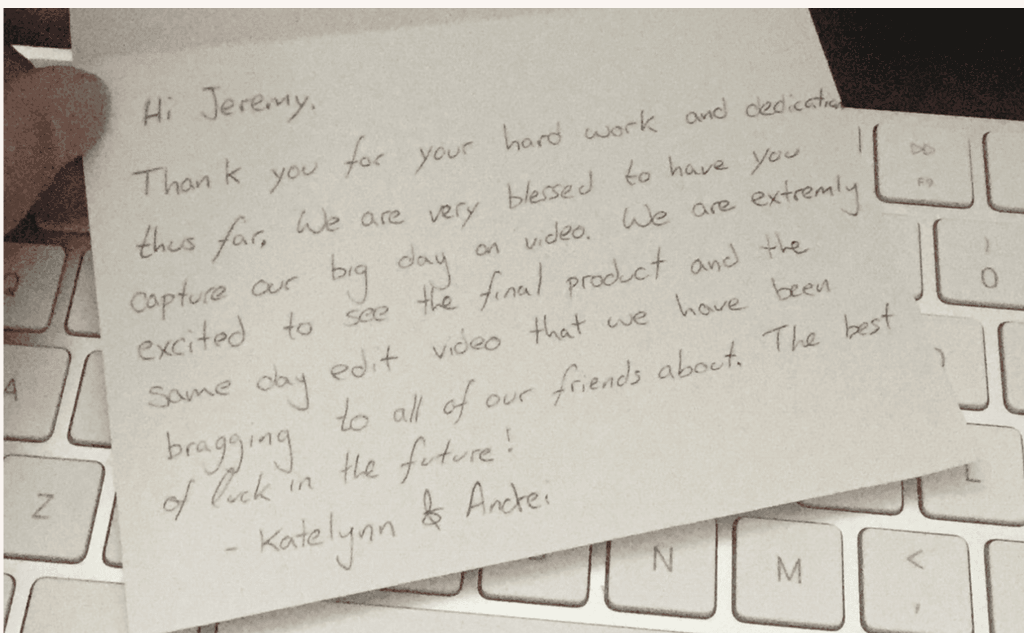 Hi Jeremy.
Thank you for your hard work and dedication
thus far. We are very blessed to have you
capture our big day on video. We are extremly
excited to see the final product and the
same day edit video that we have been
bragging to all of our friends about. The best
of luck in the future!
- Katelynn & Andrei
F9
Q
O
A
Z
L
N
M
<
,